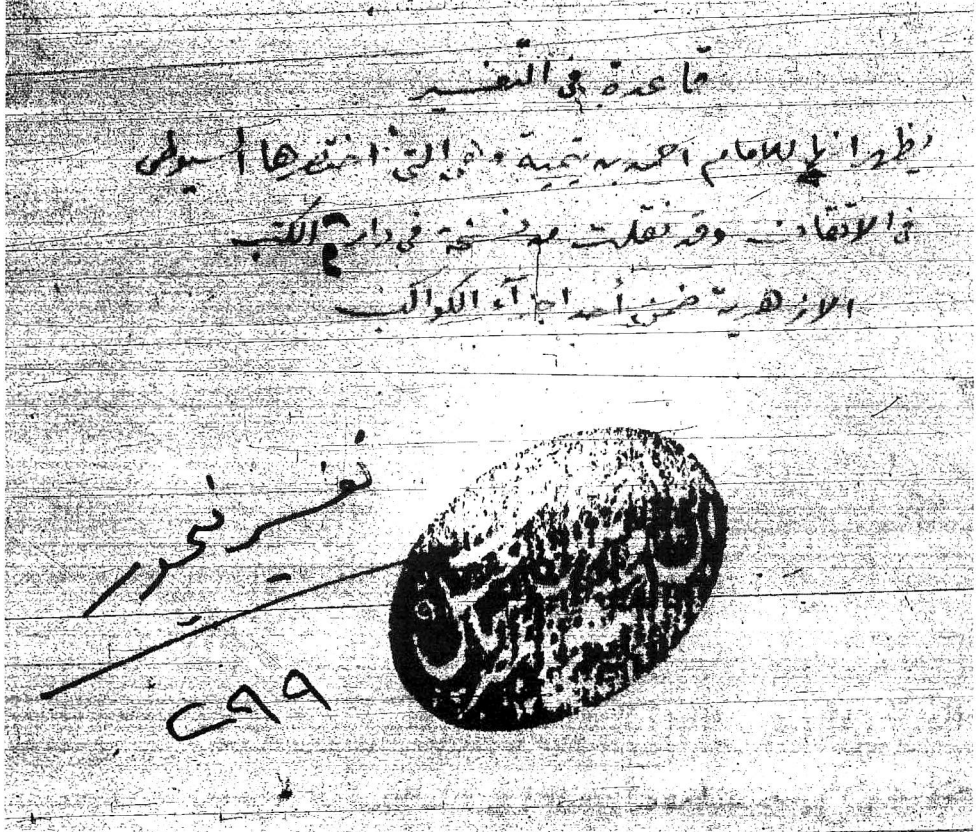 قاعدة في التفسير
يظهر انها للامام احمد بن تيمية وهي التي اختصرها السيوطي
في الاتقان وقد نقلت من نسخة في دار الكتب
الازهرية ضمن أحد اجزآء الكواكب
تفسير تيمور
٢٩٩